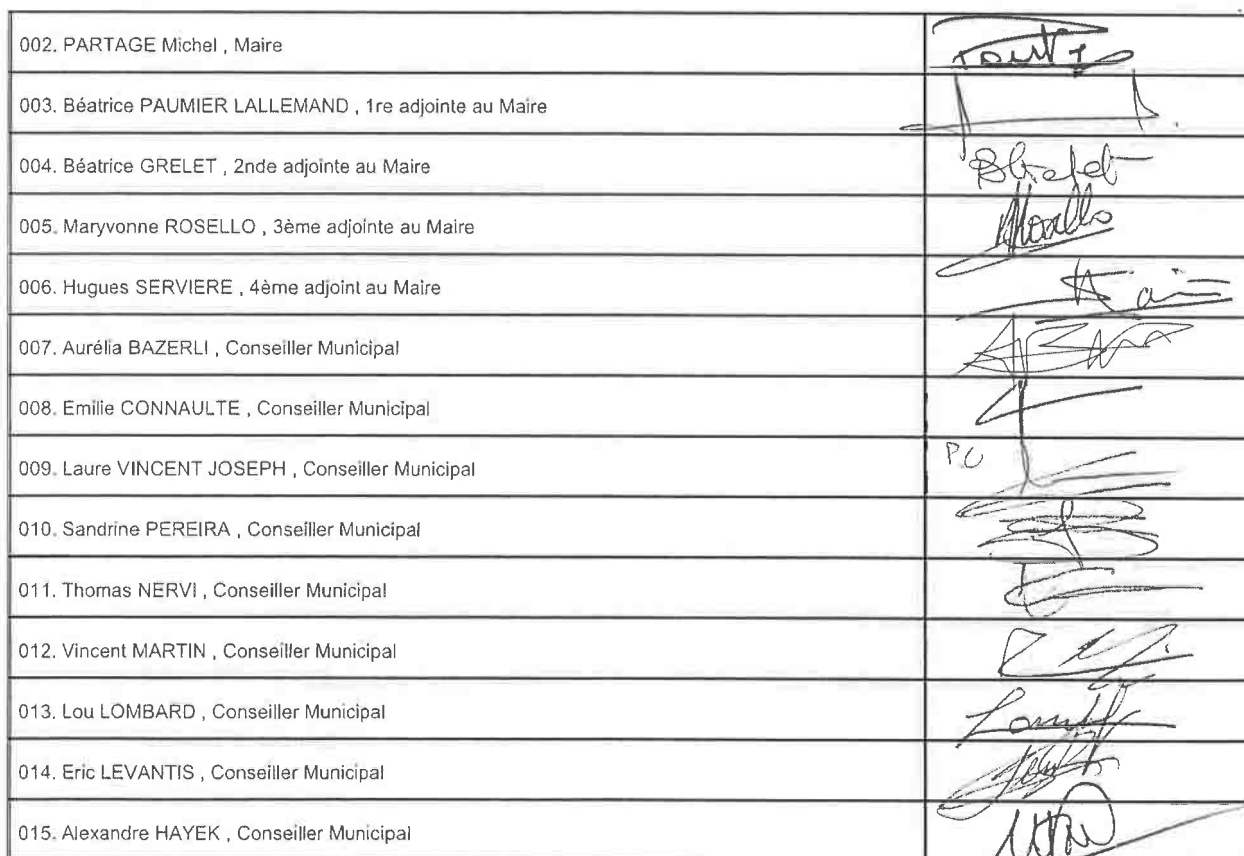 002. PARTAGE Michel , Maire
003. Béatrice PAUMIER LALLEMAND , 1re adjointe au Maire
004. Béatrice GRELET , 2nde adjointe au Maire
005. Maryvonne ROSELLO , 3ème adjointe au Maire
006. Hugues SERVIERE , 4ème adjoint au Maire
007. Aurélia BAZERLI , Conseiller Municipal
008. Emilie CONNAULTE , Conseiller Municipal
009. Laure VINCENT JOSEPH , Conseiller Municipal
010. Sandrine PEREIRA , Conseiller Municipal
011. Thomas NERVI , Conseiller Municipal
012. Vincent MARTIN , Conseiller Municipal
013. Lou LOMBARD , Conseiller Municipal
014. Eric LEVANTIS , Conseiller Municipal
015. Alexandre HAYEK , Conseiller Municipal